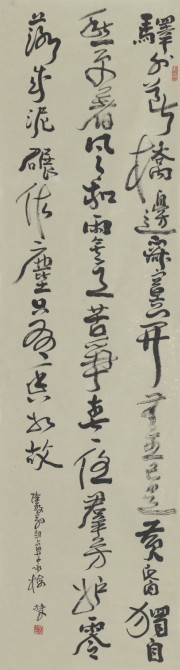 驛外斷橋邊寂寞開無主已是黃昏獨自
愁更著風和雨無意苦爭春一任羣芳妒零
落成泥碾作塵只有香如故
卜算子詠梅